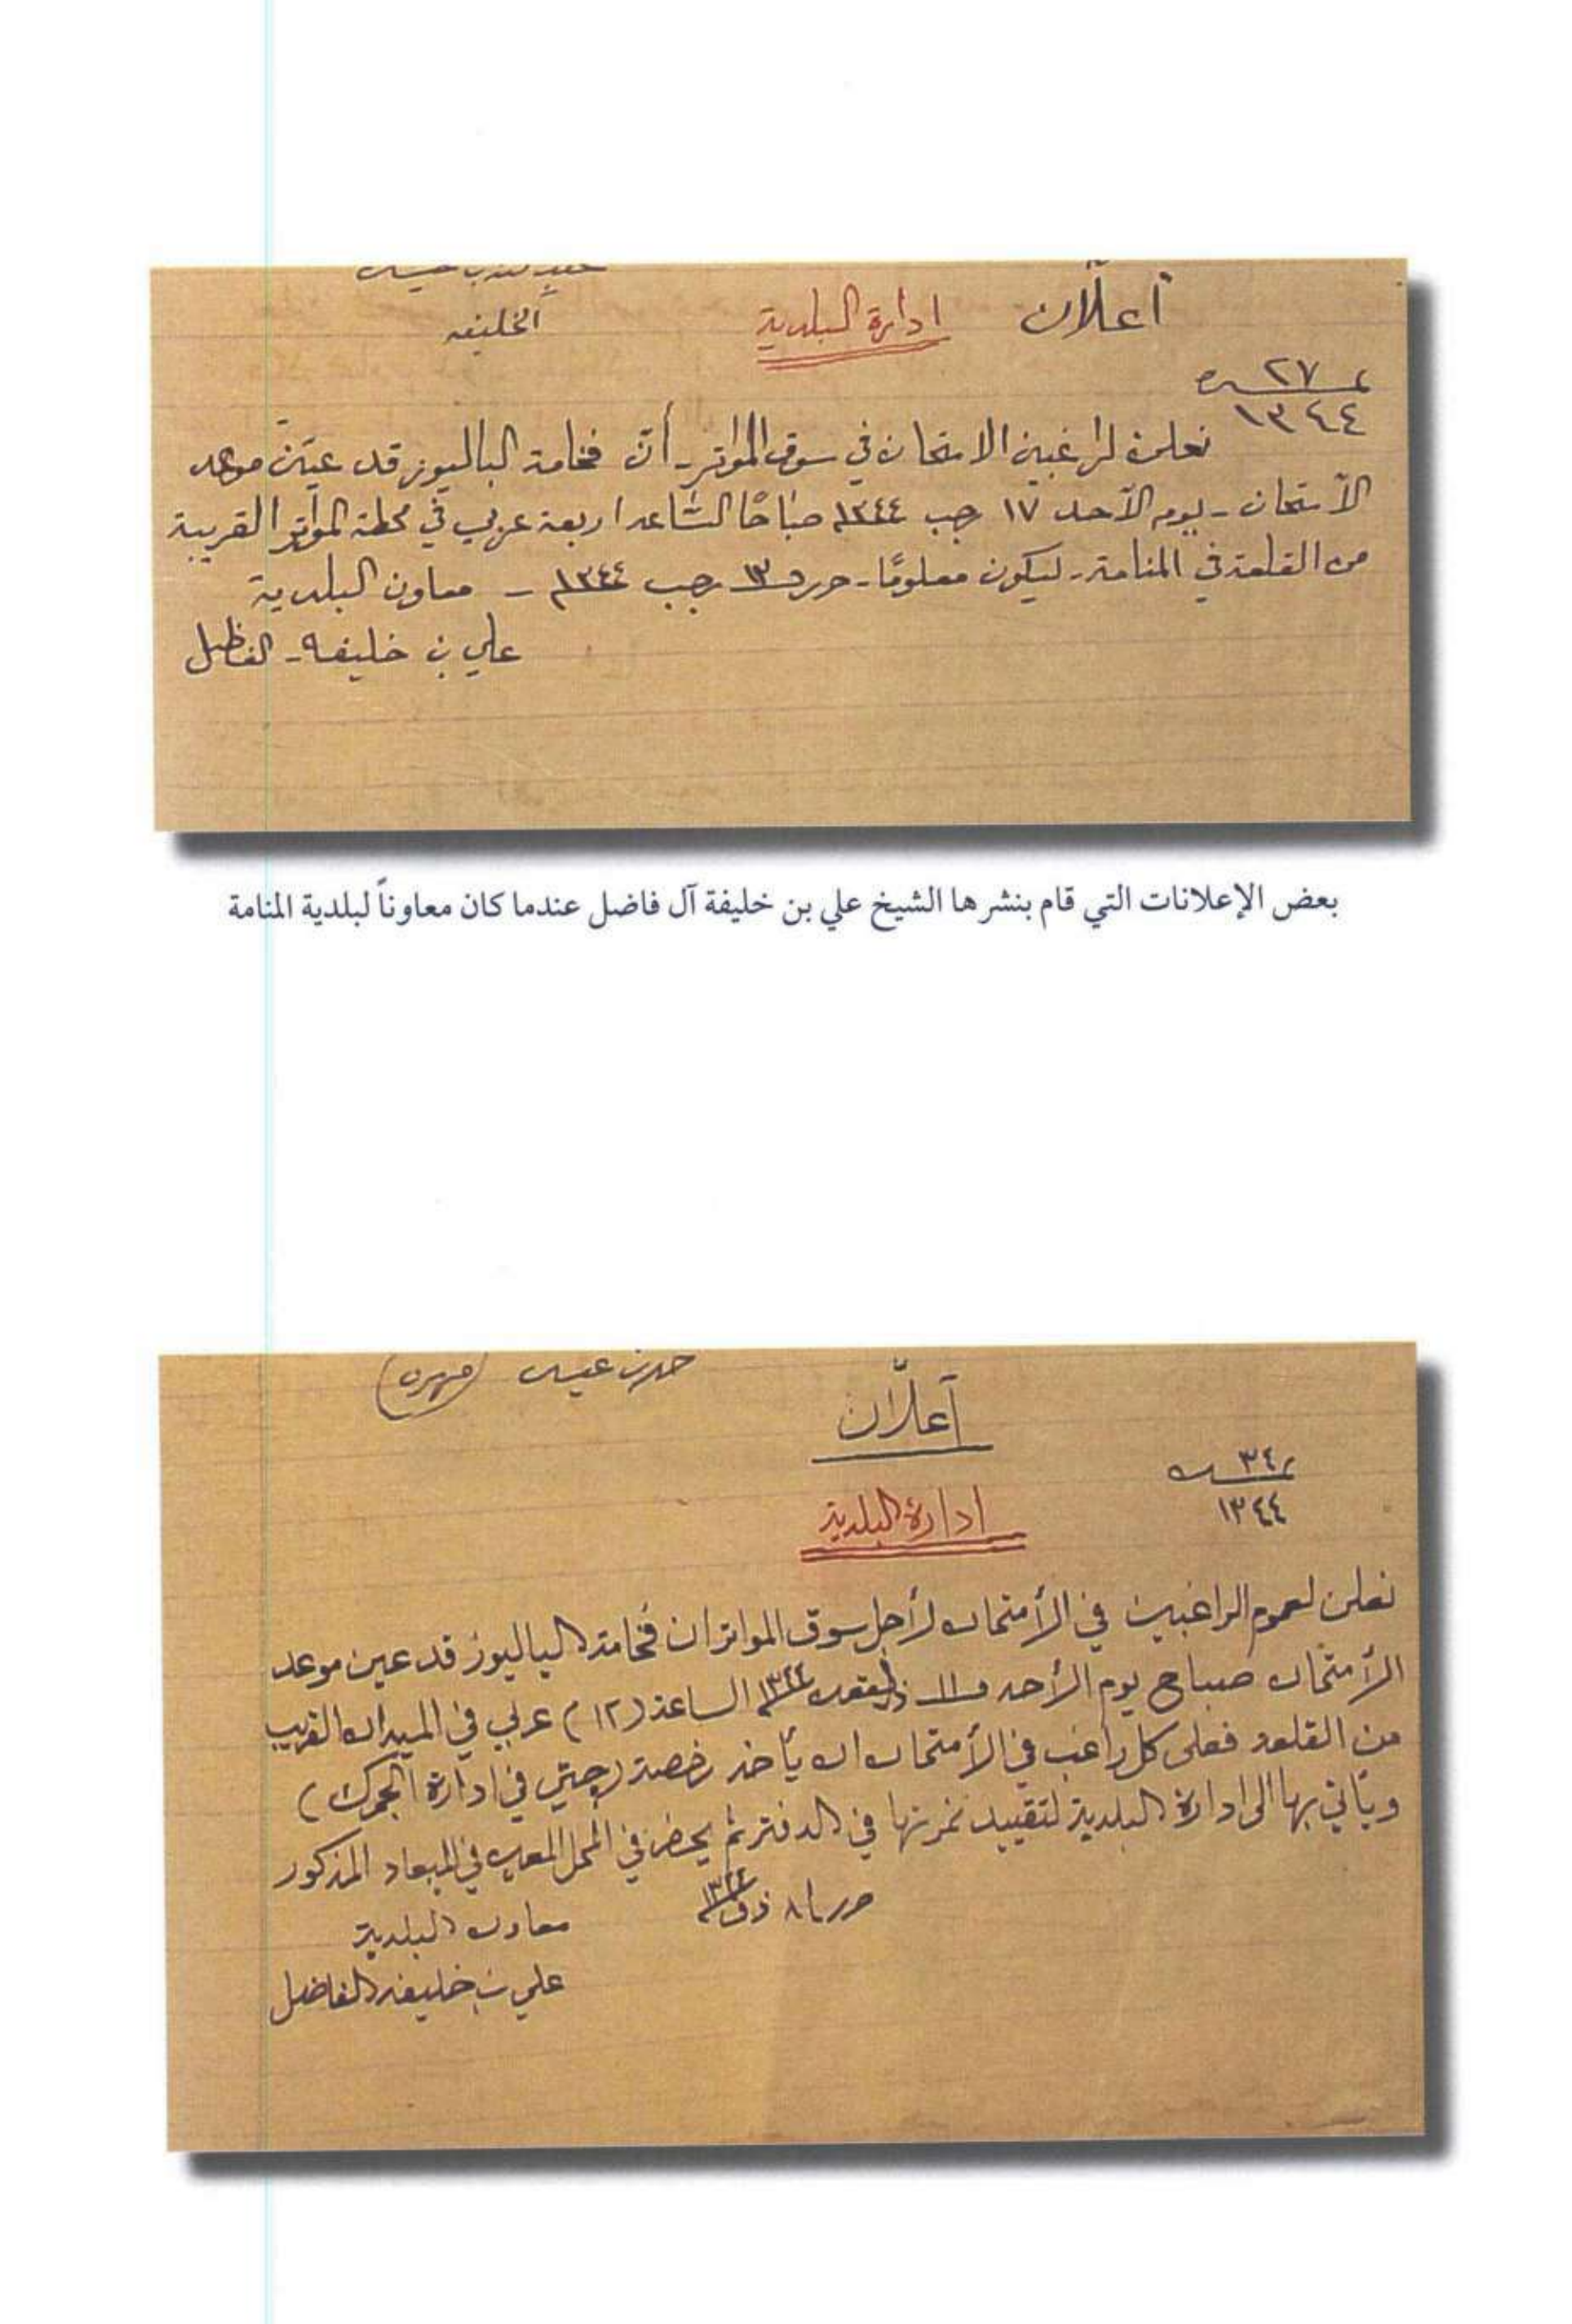 الخليفه
اعلان ادارة البلدية
نمرة ٢٧
١٣٤٤
نعلن لراغبين الامتحان في سوق المواتر - أن فخامة الباليوز قد عين موعد
الامتحان - يوم الاحد ١٧ رجب ١٣٤٤ صباحًا الساعه اربعة عربي في محطة المواتر القريبة
من القلعة في المنامة - ليكون معلومًا - حرر ١٣ رجب ١٣٤٤ - معاون البلدية
علي بن خليفه - الفاظل
بعض الإعلانات التي قام بنشرها الشيخ علي بن خليفة آل فاضل عندما كان معاوناً لبلدية المنامة
حمد بن عيسى (مهره)
اعلان
نمرة ٣٤
١٣٤٤
ادارة البلدية
نعلن لعموم الراغبين في الأمتحان لأجل سوق المواتر ان فخامة الباليوز قد عين موعد
الأمتحان صباح يوم الأحد ١١ ذيقعده ١٣٤٤ الساعة (١٢) عربي في الميدان القريب
من القلعه فعلى كل راغب في الأمتحان ان يأخذ رخصة (چتي في ادارة الجمرك)
ويأتي بها الى ادارة البلدية لتقييد نمرتها في الدفتر ثم يحضر في المحل المعين في الميعاد المذكور
حرر ٨ ذق ١٣٤٤
معاون البلدية
علي بن خليفه الفاضل